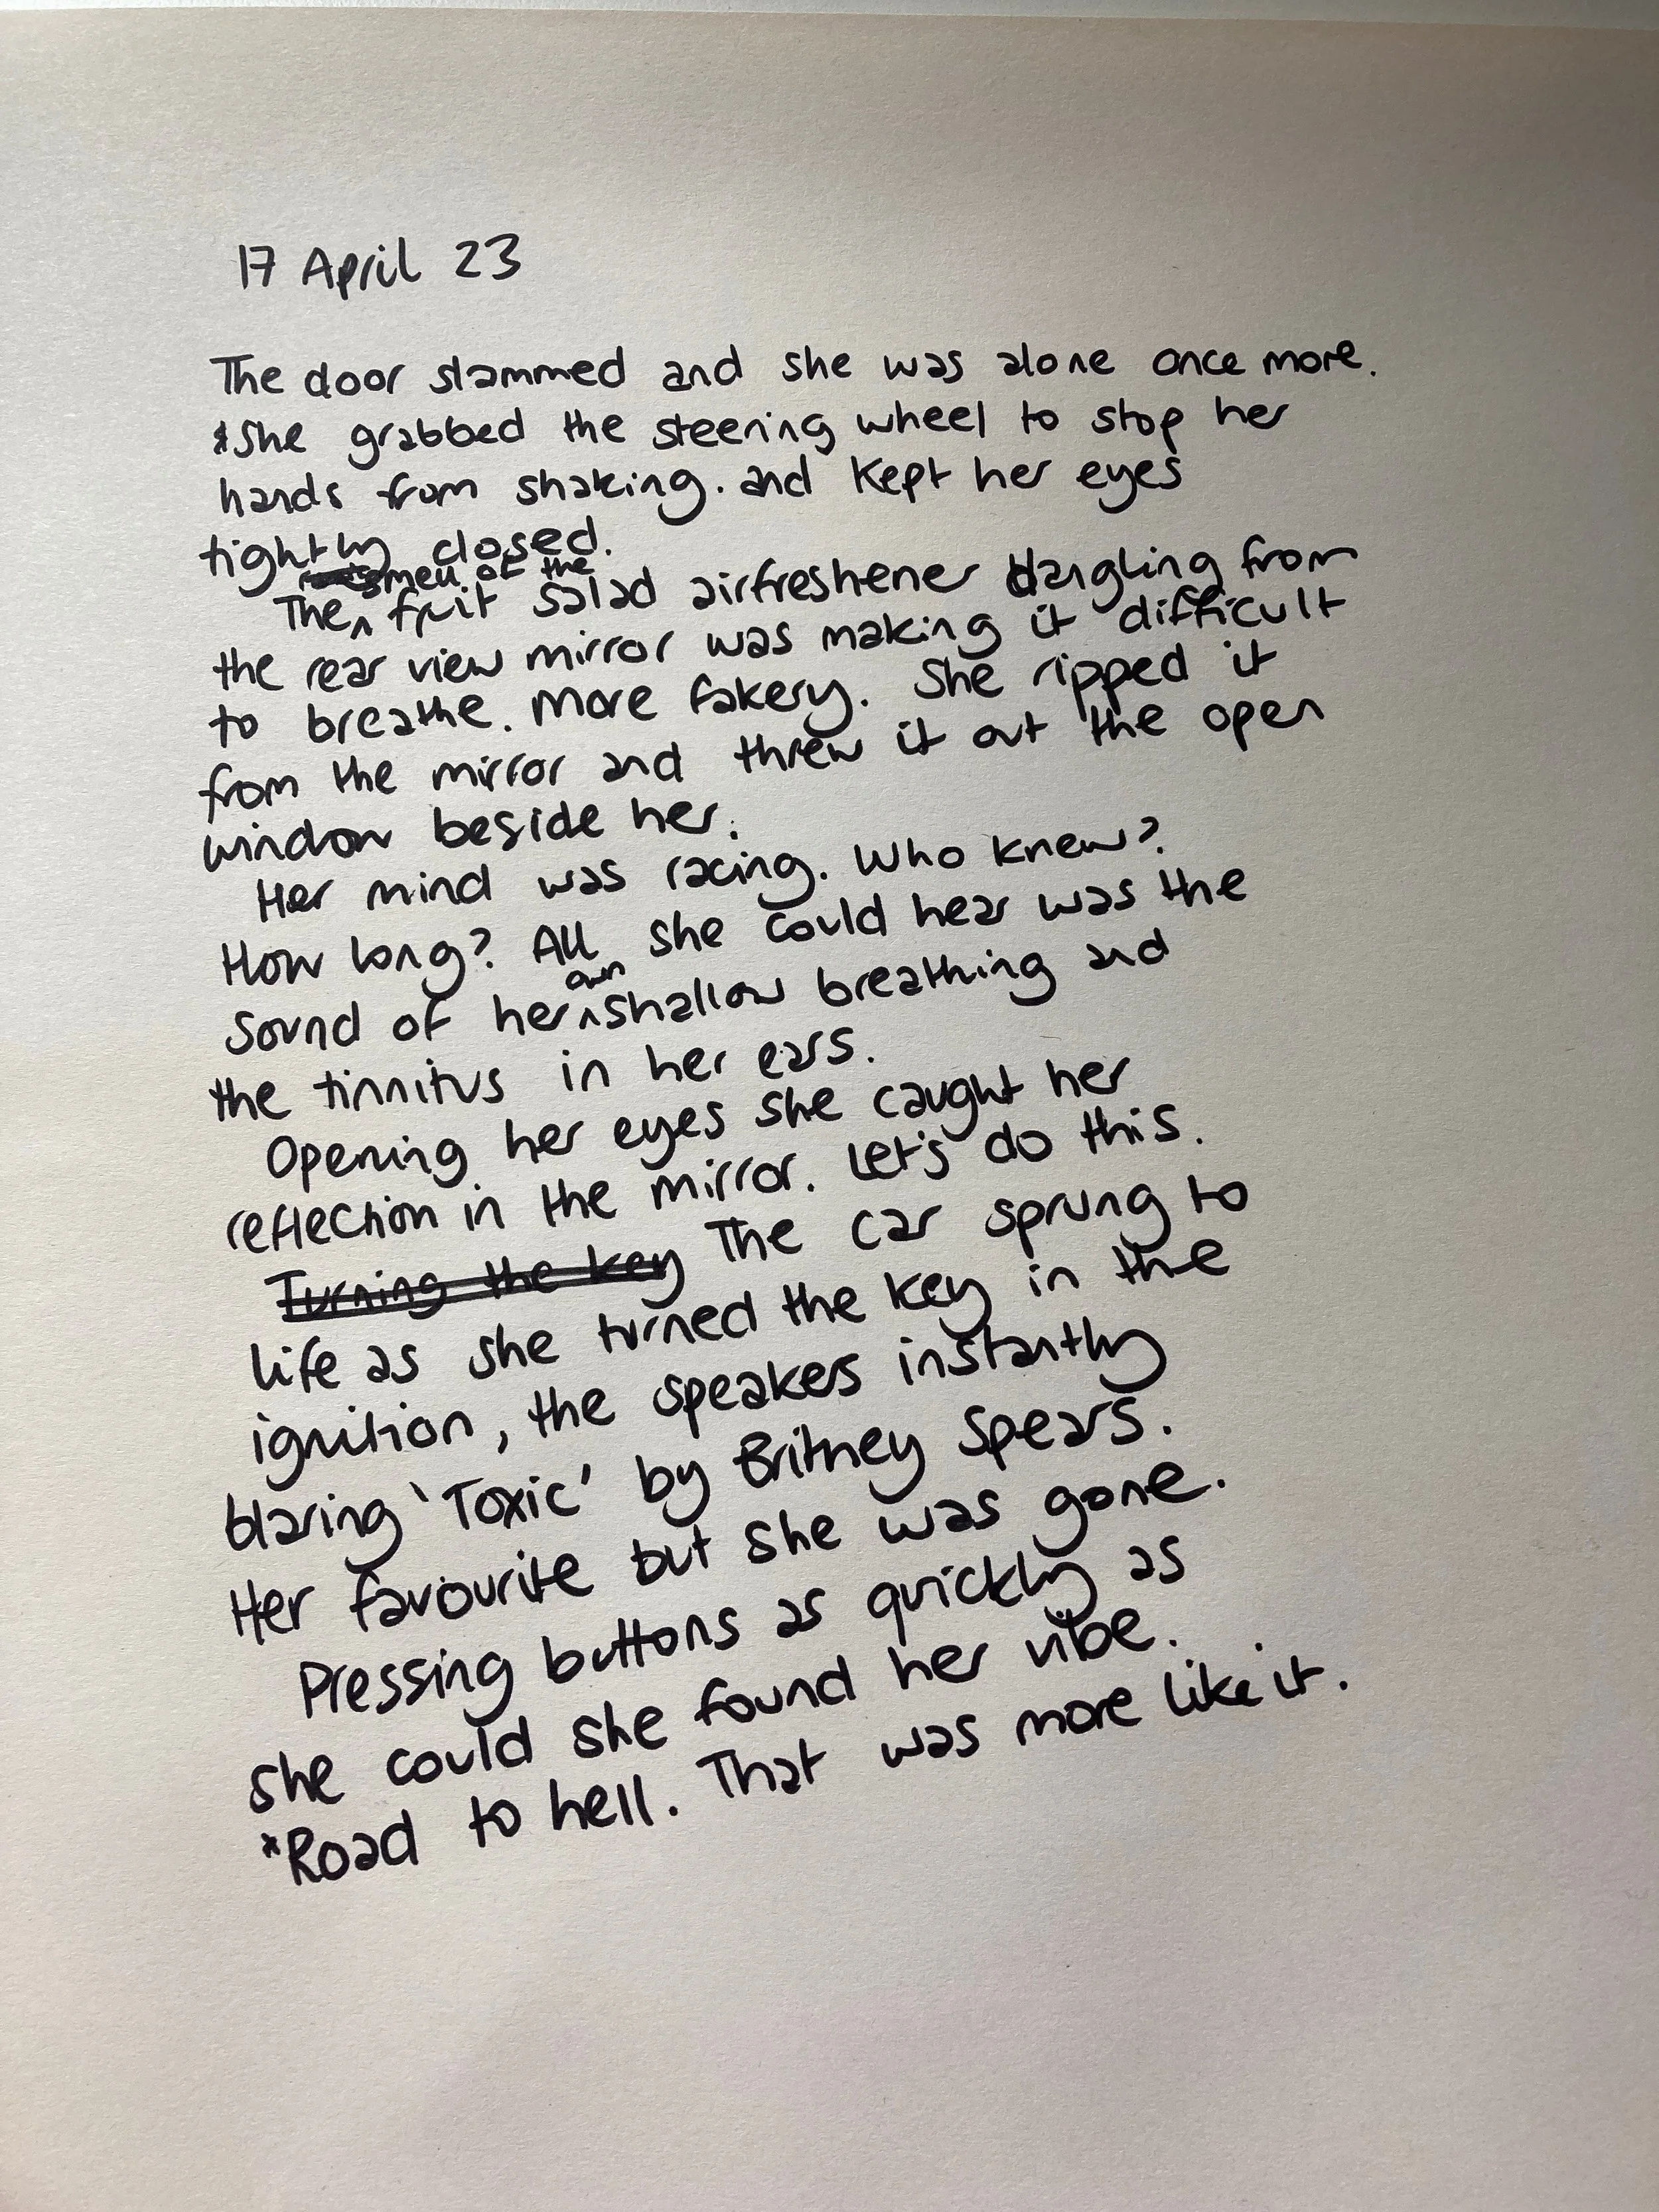 17 April 23
The door slammed and she was alone once more.
*She grabbed the steering wheel to stop her
hands from shaking. and kept her eyes
tightly closed.
smell of the
The ^ fruit salad airfreshener dangling from
the rear view mirror was making it difficult
to breathe. More fakery. She ripped it
from the mirror and threw it out the open
window beside her.
Her mind was racing. Who knew?
How long? All she could hear was the
own
sound of her ^ shallow breathing and
the tinnitus in her ears.
Opening her eyes she caught her
reflection in the mirror. Let's do this.
Turning the key The car sprung to
life as she turned the key in the
ignition, the speakers instantly
blaring 'Toxic' by Britney Spears.
Her favourite but she was gone.
Pressing buttons as quickly as
she could she found her vibe.
*Road to hell. That was more like it.